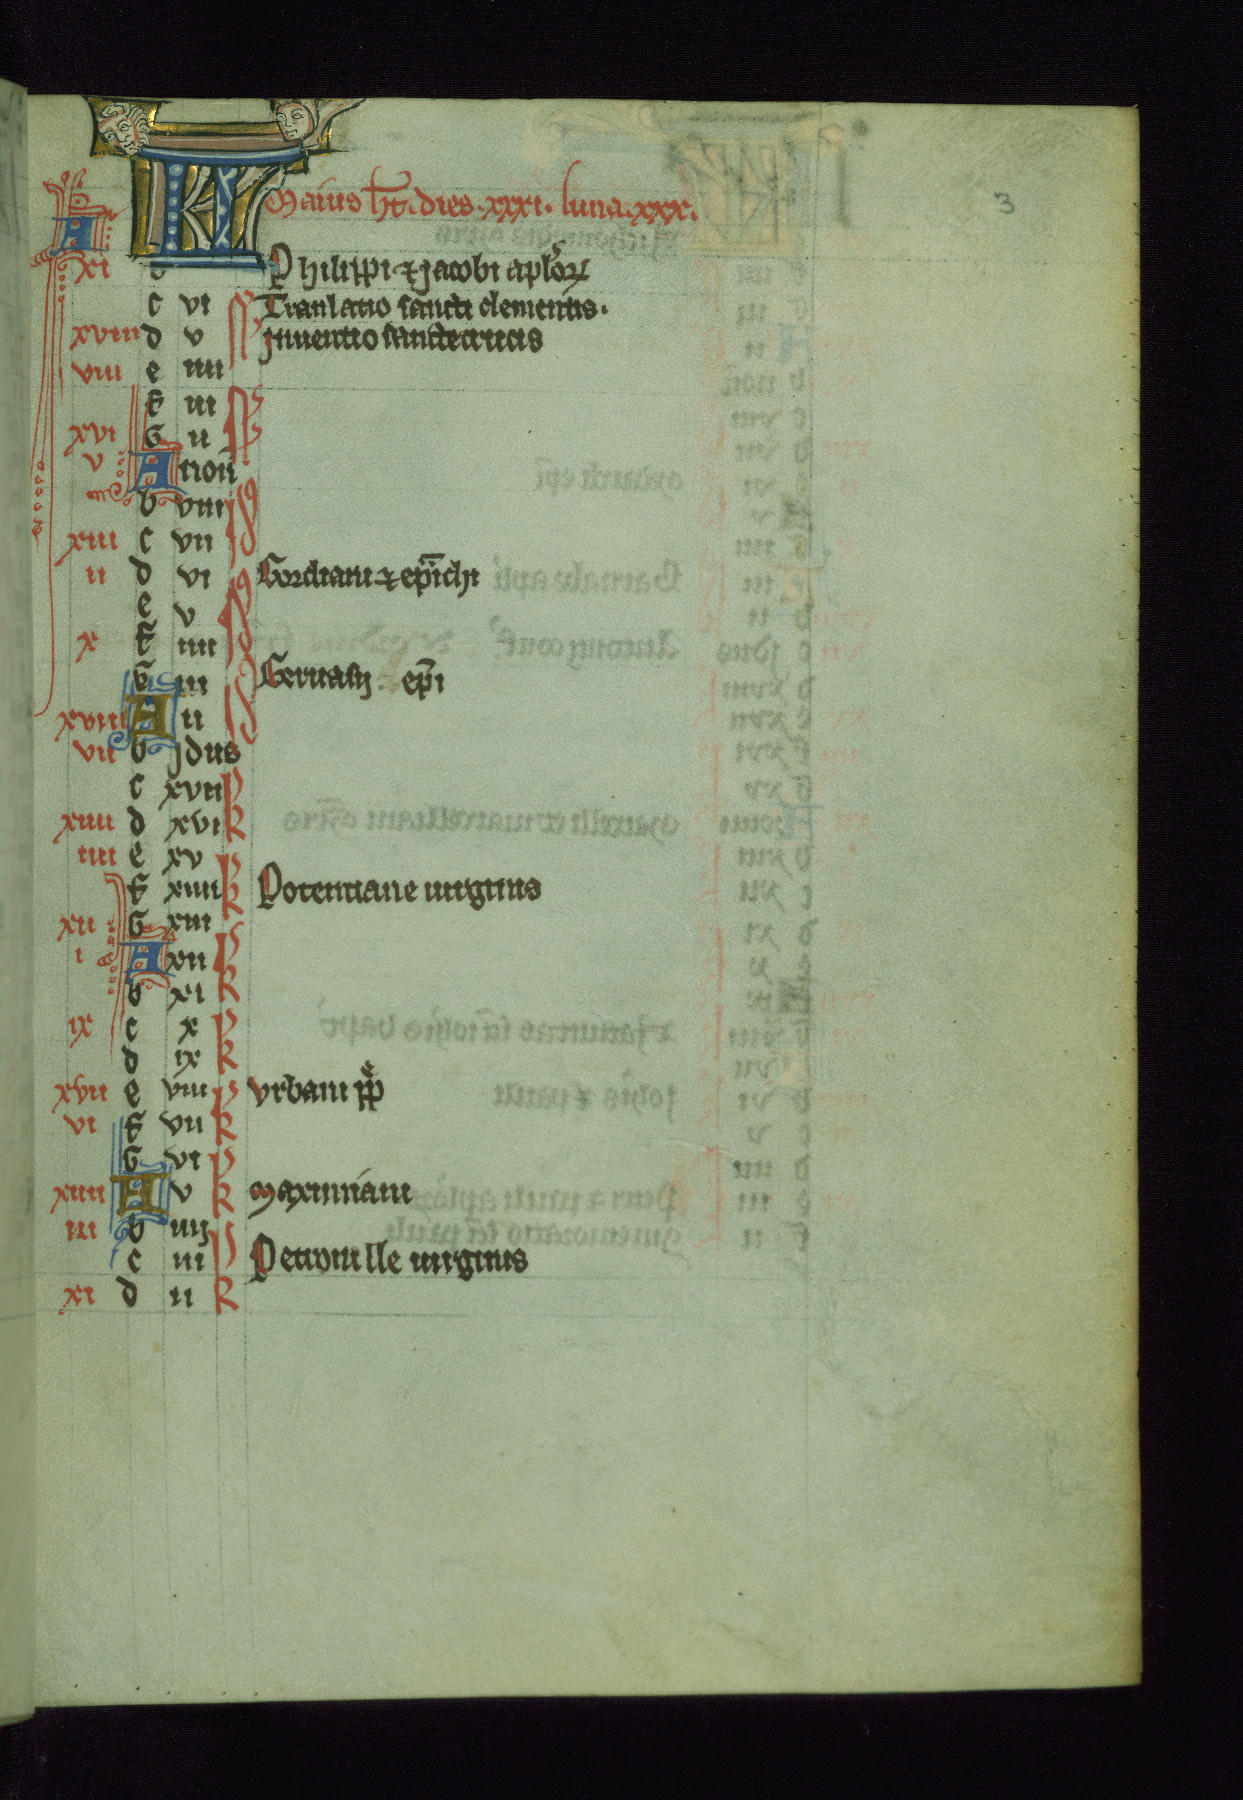 3
KL Maius ht. dies .xxxi. luna .xxx.
A
xi b Philippi & jacobi aplor
c vi Tranlatio sancti clementis.
xviiii d v jnuentio sancte crucis
viii e iiii
f iii
xvi G ii
v A non
b viii
xiii c vii
ii d vi Gordiani & epichi
e v
x f iiii
G iii Geruasij epi
xviii A ii
vii b jdus
c xvii P
xiiii d xvi R
iiii e xv P
f xiiii R Potentiane uirginis
xii G xiii P
i A xii
b xi R
ix c x P
d ix R
xvii e viii P vrbani pp
vi f vii R
G vi P
xiiii A v R Maximiani
iii b iiij P
c iii Petronille uirginis
xi d ii R